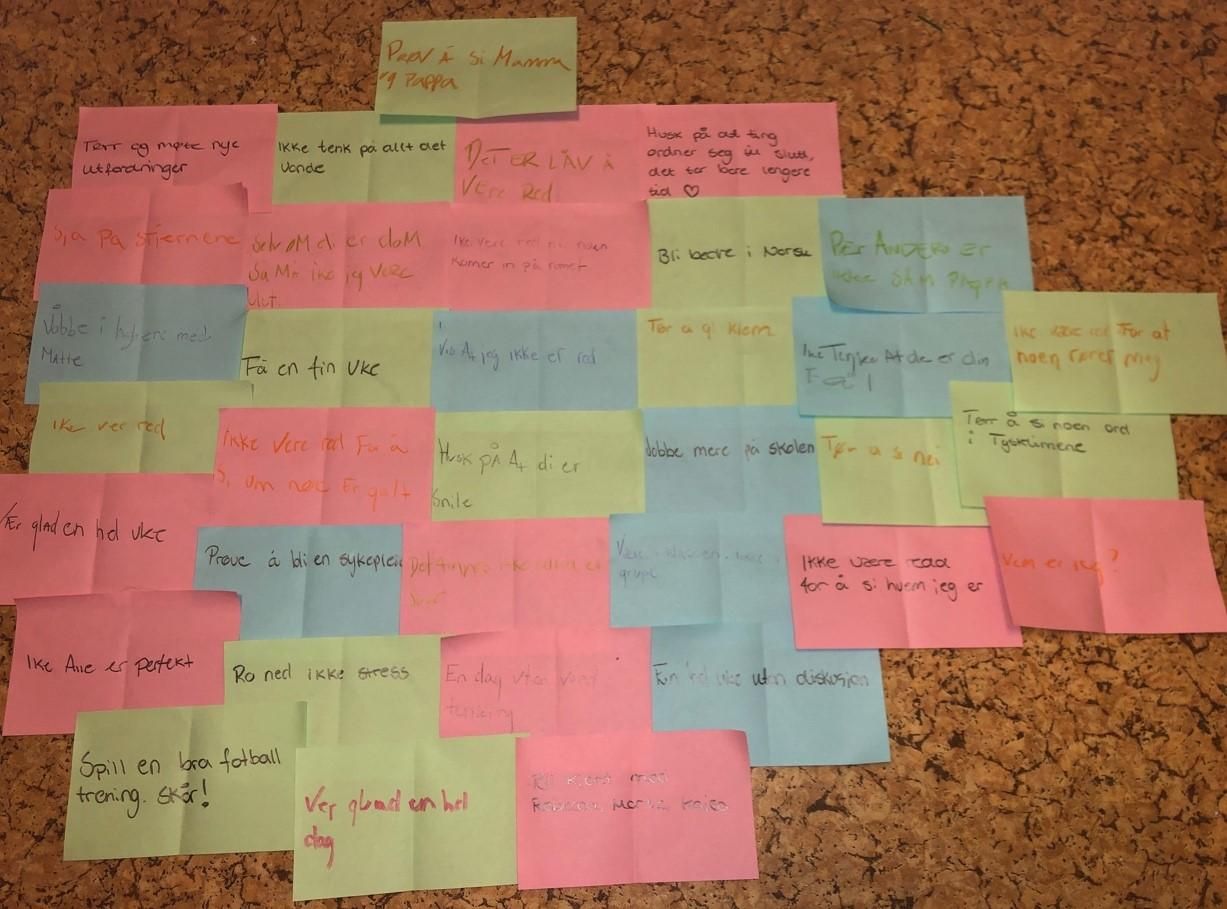 Prøv Å Si Mamma
og Pappa
Tørr og møte nye
utfordninger
Ikke tenk på allt det
Vonde
DET ER LÅV Å
VÆre Red
Husk på at ting
ordner seg til slutt,
det tar bare lengere
tid ♡
på stjernene
Selv øM di er doM
Så Må ike jg Være
Ike være red når noen
Komer in på romet
Bli bedre i Norsk
Per ANDERS ER
SÅM PAppA
Jobbe i høyere med
Matte
Få en fin Uke
At jeg ikke er red
Tør a gi klem
Ike Tenke At de er din
Ike være red For at
noen rører meg
Ike ver red
Ikke vere red For å
Si om noe Er galt
Husk på At di er
Snile
Jobbe mere på skolen
Tør a si nei
Tørr å si noen ord
i Tysktimene
Vær glad en hel uke
Prøve å bli en sykepleier
grupe
Ikke være redd
for å si hvem jeg er
Vem er jeg?
Ike Alle er perfekt
Ro ned ikke stress
En dag uten vond
tenking
En hel uke uten diskusjon
Spill en bra fotball
trening. Skår!
Ver glad en hel
dag
Bli Kjent med